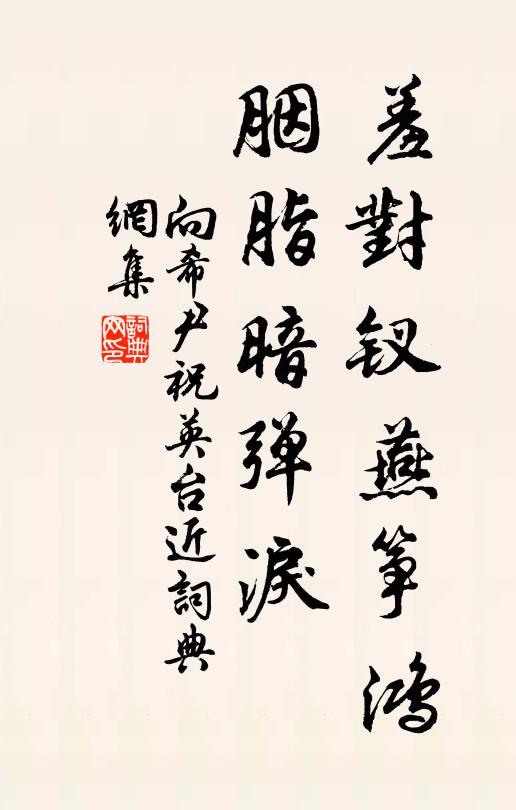 羞對钗燕筝鸿
胭脂暗弹淚
向希尹祝英台近詞典
網集
詞典
网印